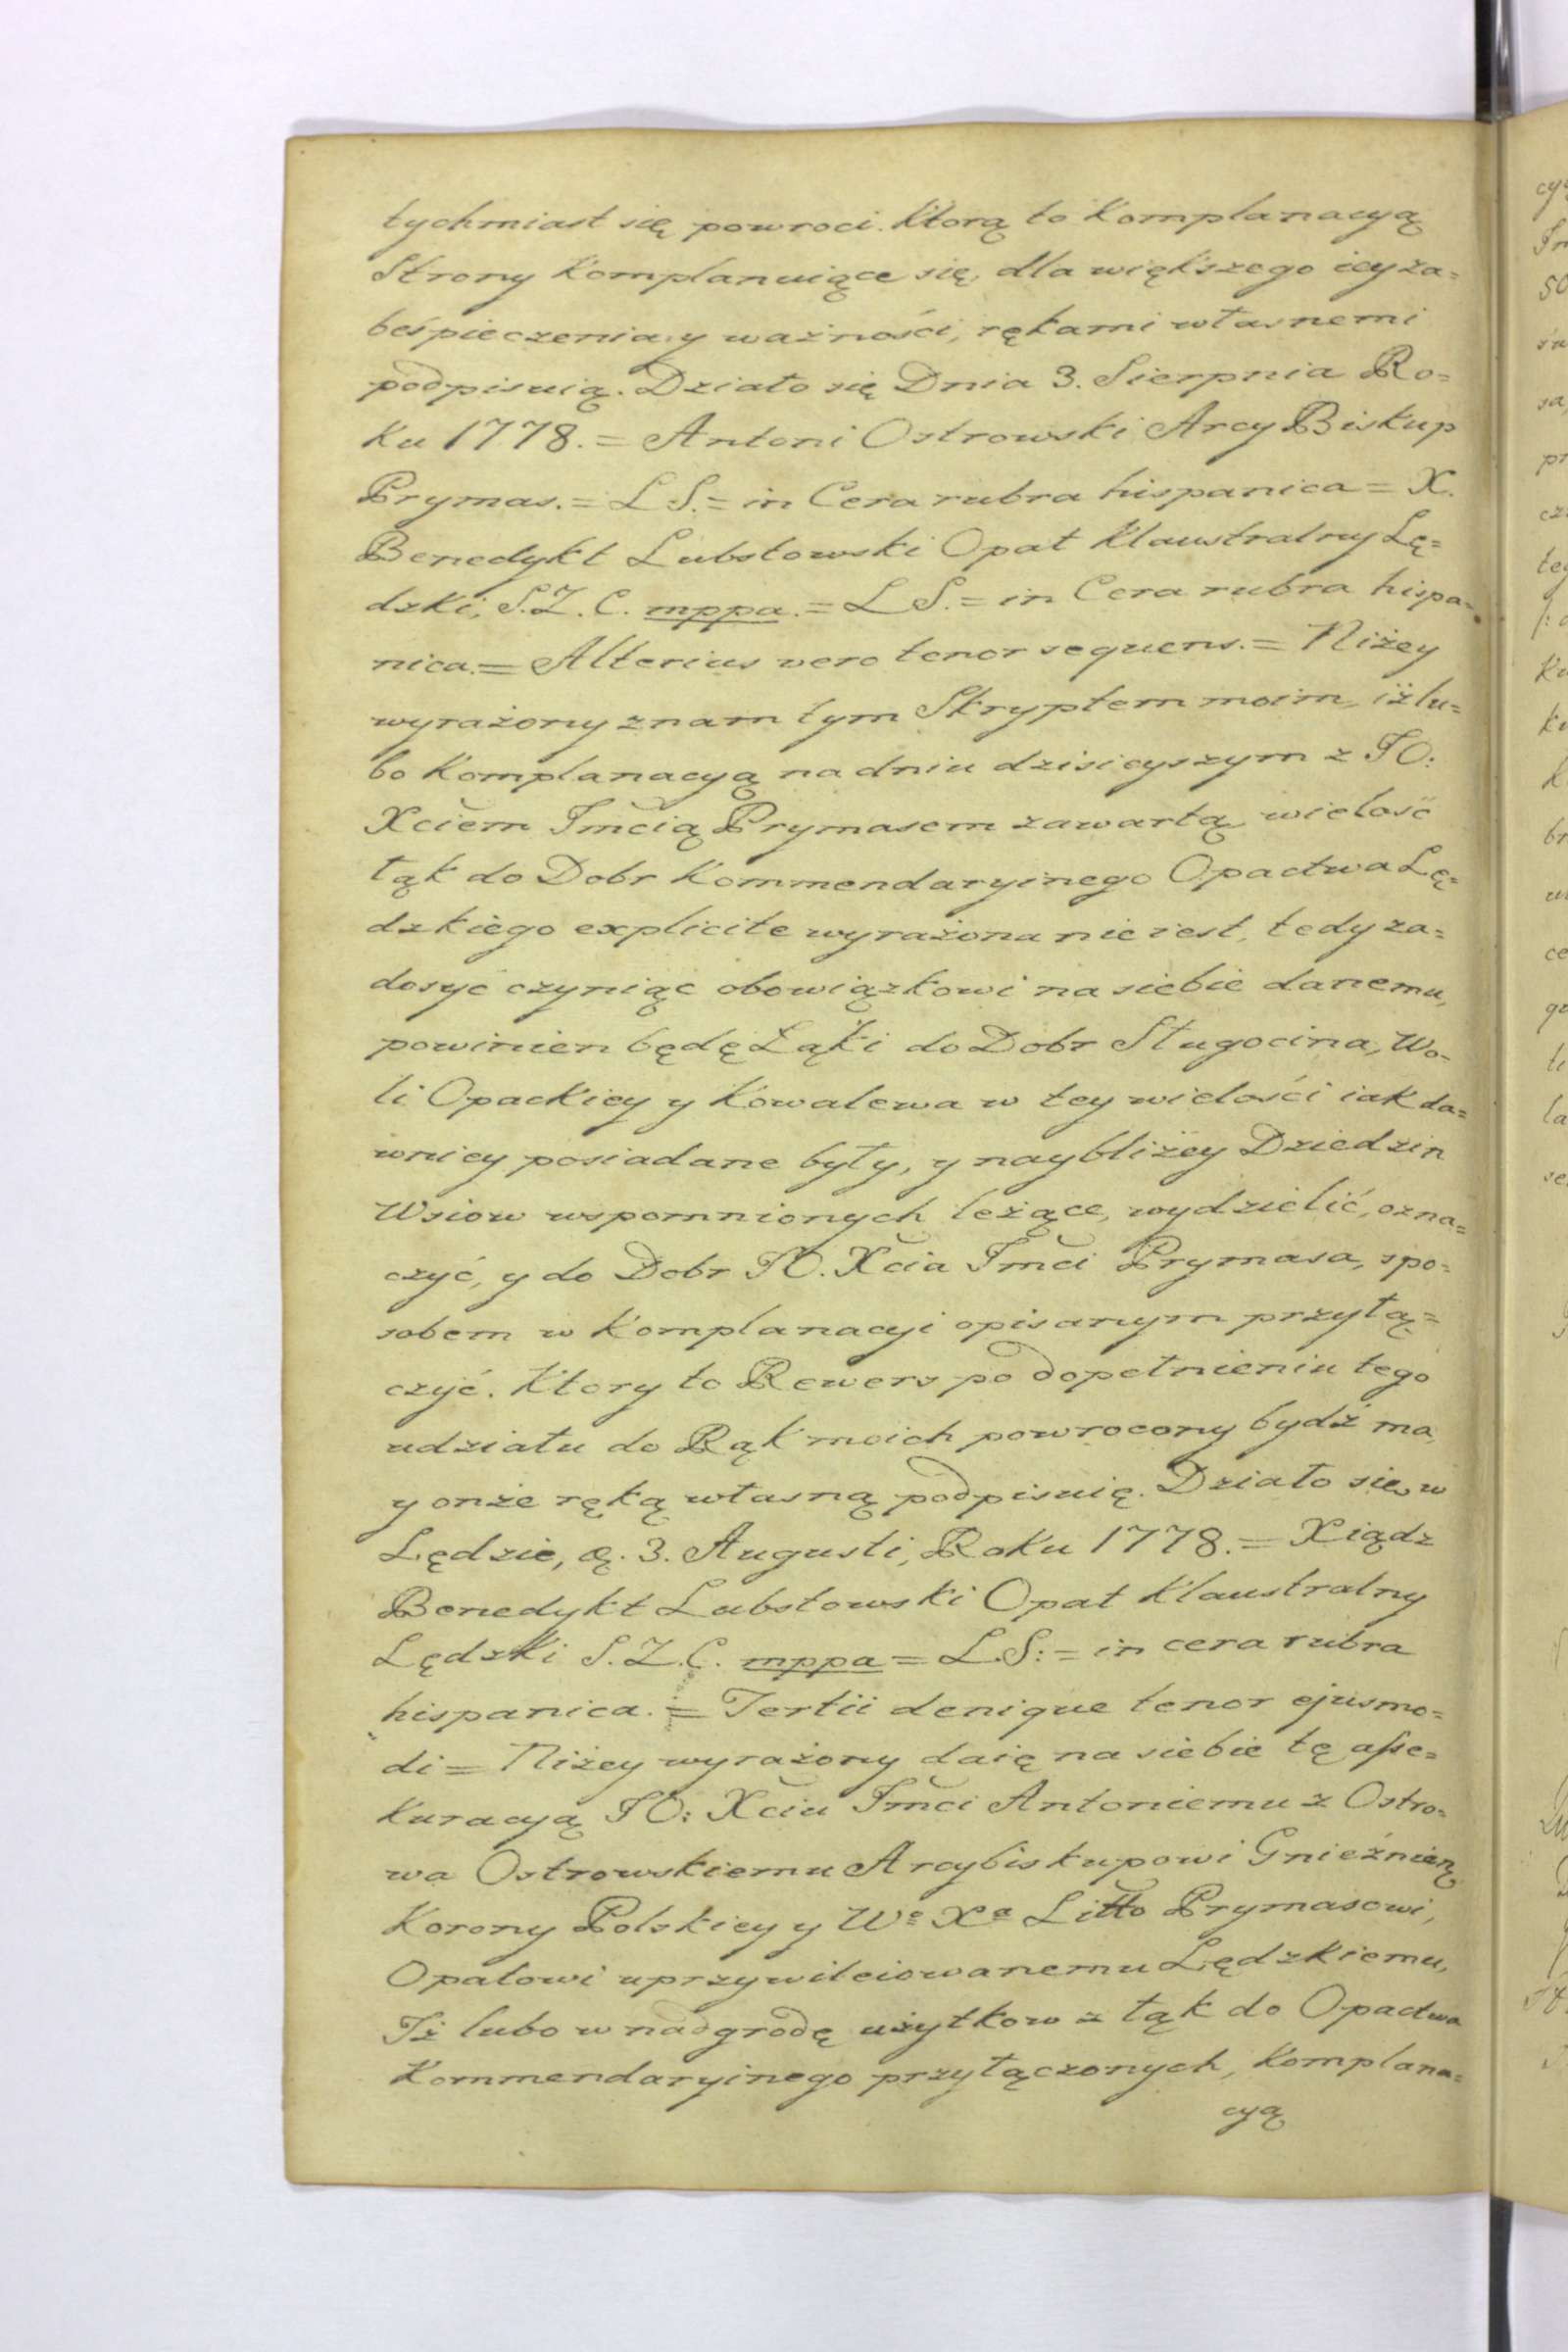 tychmiast się powroci. Ktorą to Komplanacyą
Strony Komplanuiące się, dla większego iey za=
beśpieczenia y ważności, rękami własnemi
podpisuią. Działo się Dnia 3. Sierpnia Ro=
ku 1778. = Antoni Ostrowski Arcy Biskup
Prymas. = L S. = in Cera rubra hispanica = X.
Benedykt Lubstowski Opat Klaustralny Lę=
dzki, S.Z.C. mppa. = L S. = in Cera rubra hispa=
nica. = Alterius vero tenor sequens. = Niżey
wyrażony znam tym Skryptem moim, iż lu=
bo Komplanacyą na dniu dzisieyszym z JO:
Xciem Jmcią Prymasem zawartą wielość
łąk do Dobr Kommendaryinego Opactwa Lę=
dzkiego explicite wyrażona nie iest, tedy za=
dosyć czyniąc obowiązkowi na siebie danemu,
powinien będę Łąki do Dobr Sługocina, Wo=
li Opackiey y Kowalewa w tey wielości iak da=
wniey posiadane były, y naybliżey Dziedzin
Wsiow wspomnionych leżące, wydzielić, ozna=
czyć, y do Dobr JO. Xcia Jmci Prymasa, spo=
sobem w Komplanacyi opisanym przyłą=
czyć. Ktory to Rewers po dopełnieniu tego
udziału do Rąk moich powrocony bydź ma,
y onże ręką własną podpisuię. Działo się w
Lędzie, 3. Augusti, Roku 1778. = Xiądz
Benedykt Lubstowski Opat Klaustralny
Lędzki S.Z.C. mppa = L.S: = in cera rubra
hispanica. = Tertii denique tenor ejusmo=
di = Niżey wyrażony daię na siebie tę asse=
kuracyą JO: Xciu Jmci Antoniemu z Ostro=
wa Ostrowskiemu Arcybiskupowi Gnieźnień
Korony Polskiey y Wo Xa Litto Prymasowi,
Opatowi uprzywileiowanemu Lędzkiemu,
Iż lubo w nadgrodę użytkow z łąk do Opactwa
Kommendaryinego przyłączonych, Komplana=
cyą